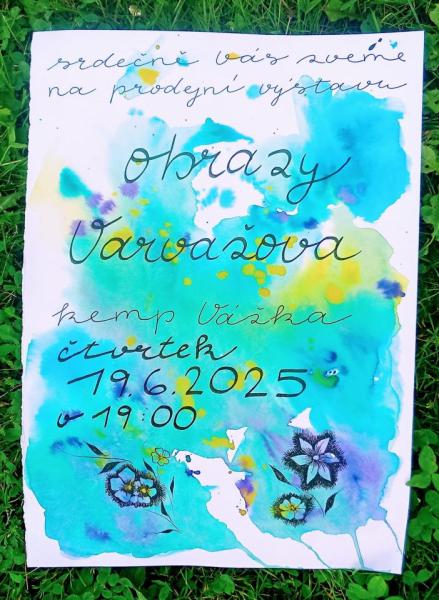 srdečně vás zveme
na prodejní výstavu
obrazy
Varvažova
kemp Vážka
čtvrtek
19.6.2025
v 19:00